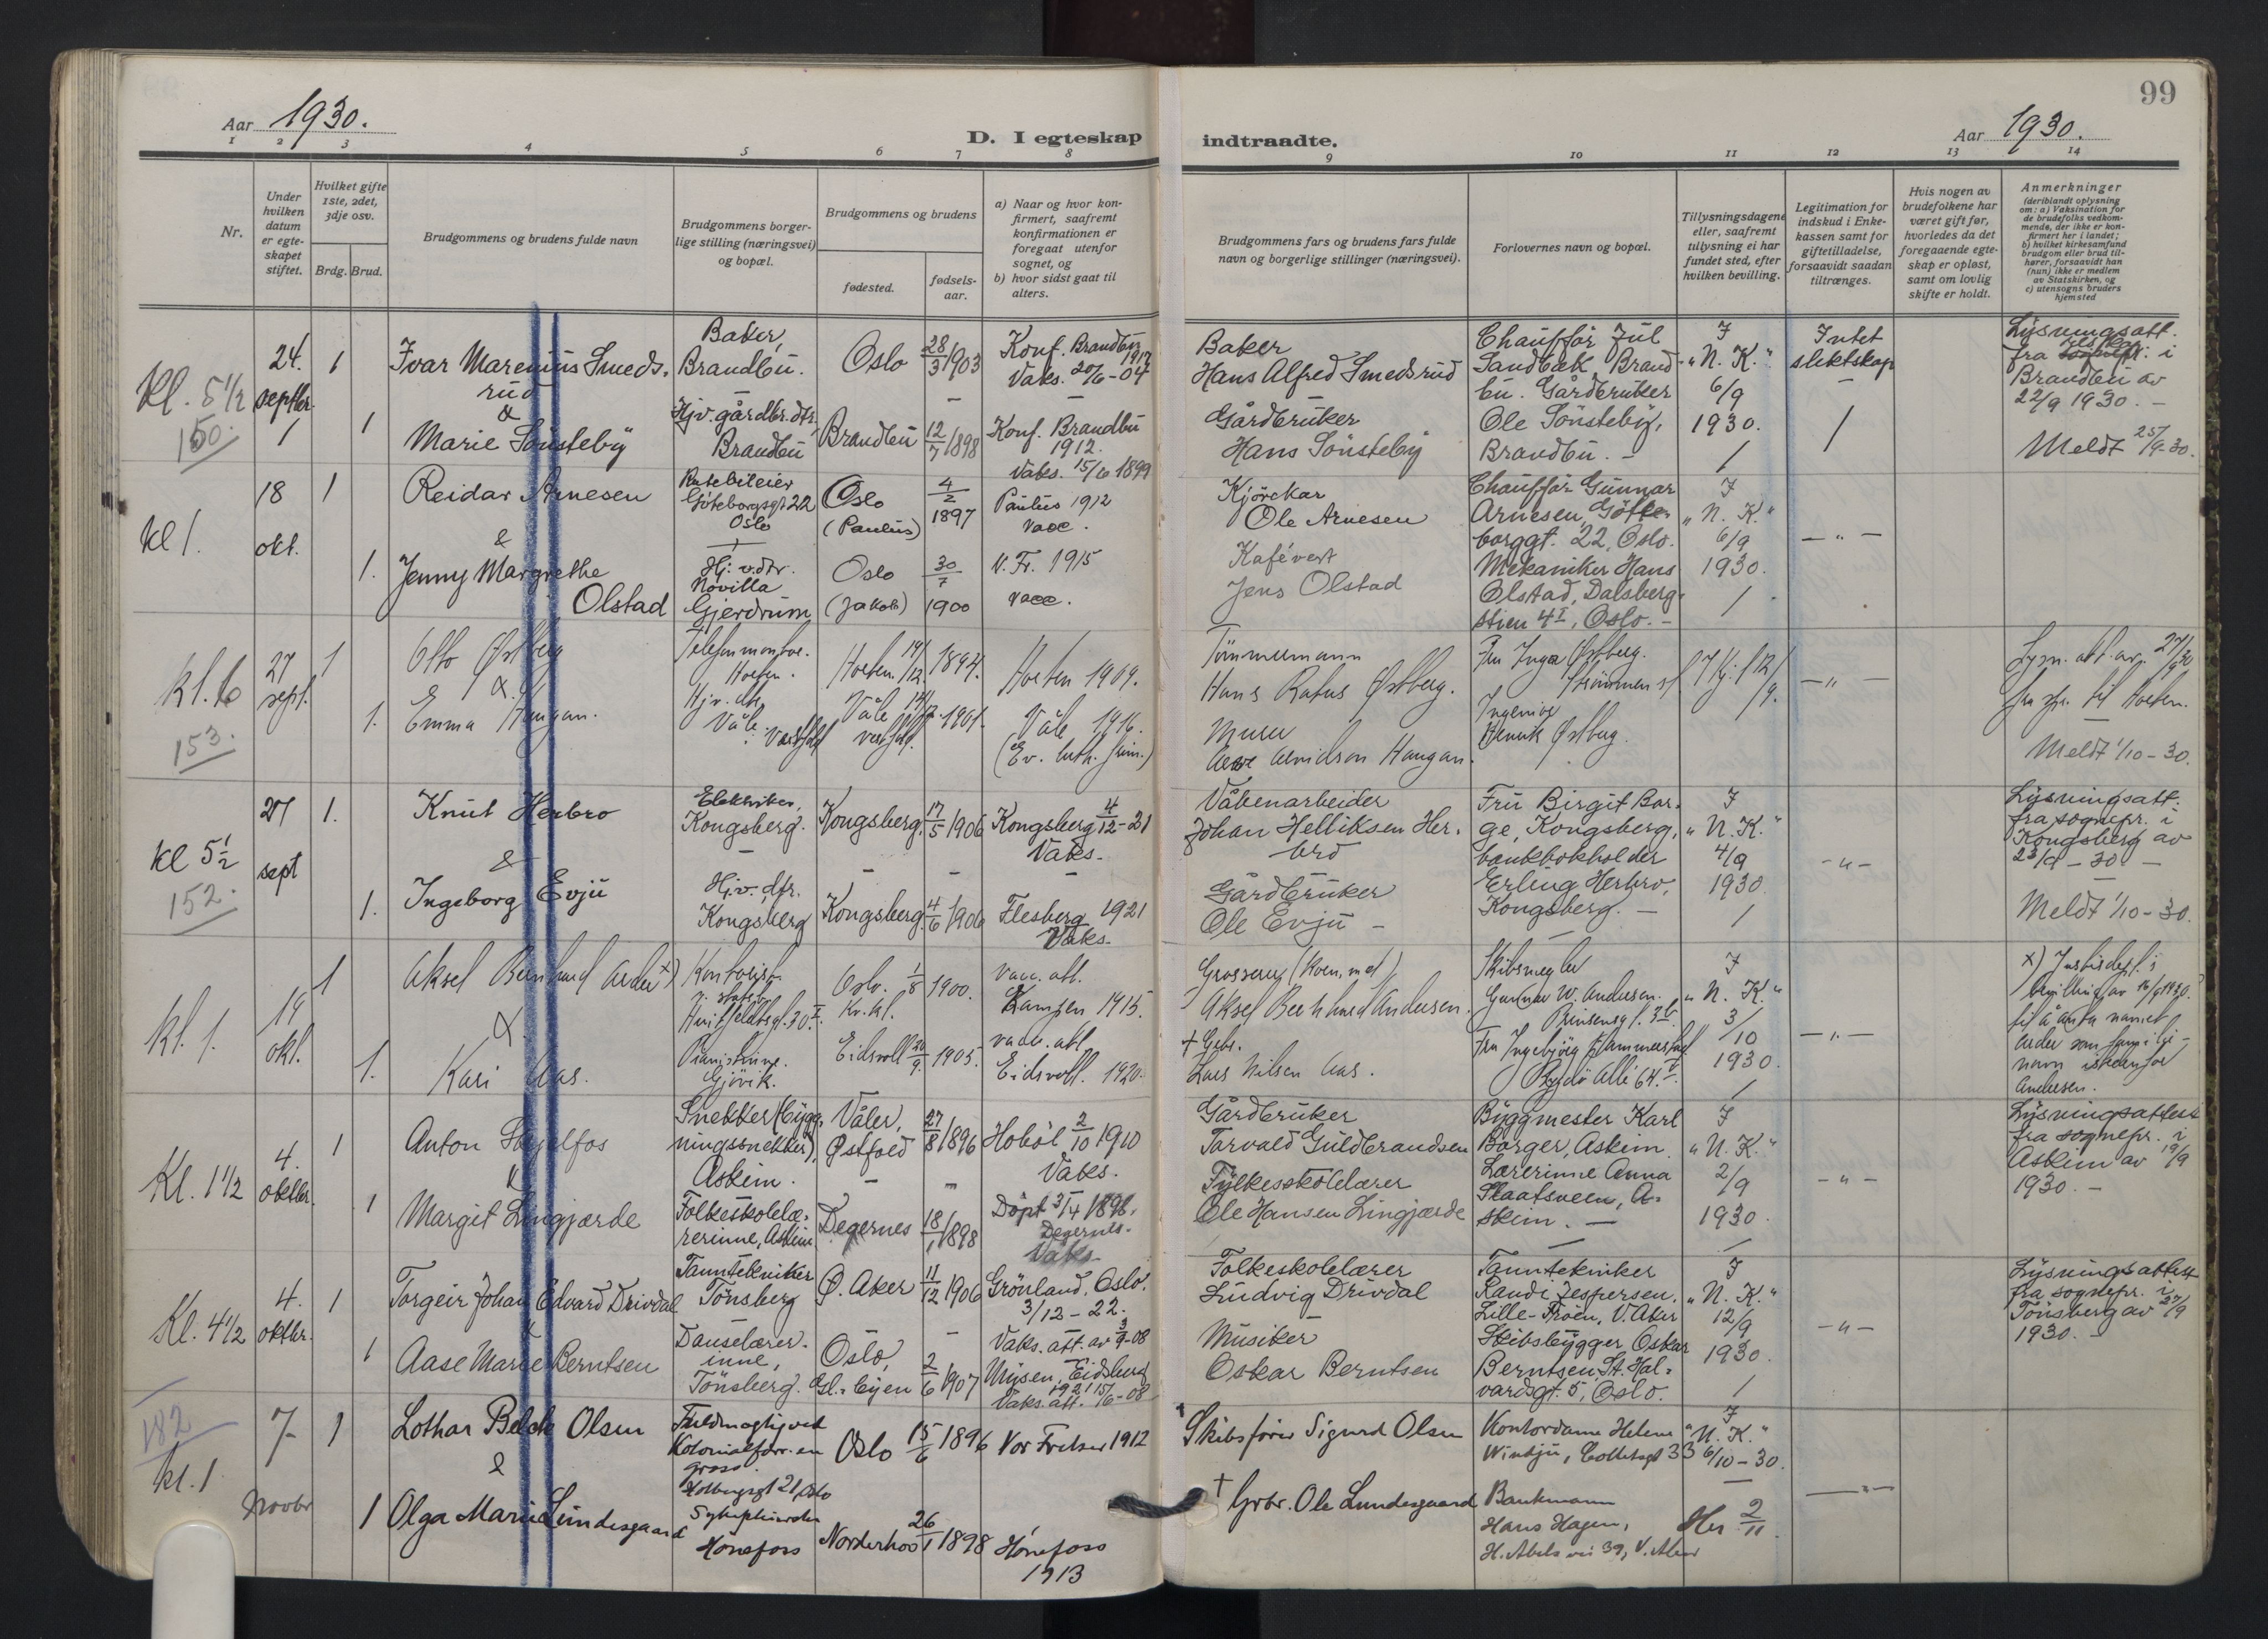 99
Aar 1930.
D. I egteskap indtraadte.
Aar 1930.
1 2 3 4 5 6 7 8 9 10 11 12 13 14
Nr.
Under hvilken datum er egte-skapet stiftet.
Hvilket gifte 1ste, 2det, 3dje osv.
Brdg. Brud.
Brudgommens og brudens fulde navn
Brudgommens borger-lige stilling (næringsvei) og bopæl.
Brudgommens og brudens
fødested.
fødsels-aar.
a) Naar og hvor kon-firmert, saafremt konfirmationen er foregaat utenfor sognet, og
b) hvor sidst gaat til alters.
Brudgommens fars og brudens fars fulde navn og borgerlige stillinger (næringsvei).
Forlovernes navn og bopæl.
Tillysningsdagene eller, saafremt tillysning ei har fundet sted, efter hvilken bevilling.
Legitimation for indskud i Enke-kassen samt for giftetilladelse, forsaavidt saadan tiltrænges.
Hvis nogen av brudefolkene har været gift før, hvorledes da det foregaaende egte-skap er opløst, samt om lovlig skifte er holdt.
Anmerkninger
(deriblandt oplysning om: a) Vaksination for de brudefolks vedkom-mende, der ikke er kon-firmert her i landet; b) hvilket kirkesamfund brudgom eller brud til-hører, forsaavidt han (hun) ikke er medlem av Statskirken, og c) utensogns bruders hjemsted
Kl. 5 1/2
150.
24. septbr.
1
Ivar Marenius Smeds-
rud
&
1
Marie Sønsteby
Baker,
Brandbu.
Hjv. gårdbr. dtr.,
Brandbu
Oslo 28/3 1903
Brandbu 12/7 1898
Konf. Brandbu 1917
Vaks. 20/6-04
Konf. Brandbu
1912.
Vaks. 15/6 1899
Baker
Hans Alfred Smedsrud
Gårdbruker
Hans Sønsteby
Chauffør Jul
Sandbæk Brand-
bu. Gårdbruker
Ole Sønsteby,
Brandbu. -
I
"N. K."
6/9
1930.
Intet
slektskap
Lysningsatt.
fra i
Brandbu av
22/9 1930. -
Meldt 25/9-30.
kl 1.
18
okt.
1
Reidar Arnesen
&
1.
Jenny Margrethe
Olstad
Rutebileier
Göteborgsgt 22
Oslo
Hj. v. dtr.
Novilla
Gjerdrum
Oslo
(Paulus)
4/2 1897
Oslo
(Jakob)
30/7 1900
Paulus 1912
vacc.
V. Fr. 1915
vacc.
Kjørekar
Ole Arnesen
Kafévert
Jens Olstad
Chauffør Gunnar
Arnesen, Göte-
borggt. 22, Oslo.
Mekaniker Hans
Olstad, Dalsberg-
stien 4 I, Oslo. -
I
"N. K."
6/9
1930.
— " —
Kl. 6
153.
27
sept.
1
Otto Østberg
&
1.
Emma Haugan.
Telefonmontør.
Horten.
Hjv. dtr.
Våle. Vestfold
Horten 19/12 1894.
Våle
Vestfold. 1901.
Horten 1909.
Våle 1916.
(Ev. luth. frim.)
Tømmermann
Hans Rafus Østberg.
Murer
Arvidson Haugan.
Fru Inga Østberg.
Strømmen st
Ingeniør
Henrik Østberg.
— " —
Lysn. att. av. 27/9 30
fra spr. til Horten.
Meldt 1/10-30.
kl 5 1/2
152.
27
sept
1.
Knut Herbro
&
1.
Ingeborg Evju
Elektriker,
Kongsberg.
Hjv. dtr.
Kongsberg
Kongsberg. 17/5 1906
Kongsberg. 4/6 1906
Kongsberg 4/12-21
Vaks.
Flesberg 1921
Vaks.
Våbenarbeider
Johan Helliksen Her-
bro
Gårdbruker
Ole Evju -
Fru Birgit Bor-
ge, Kongsberg,
bankbokholder
Erling Herbro,
Kongsberg. -
I
"N. K."
4/9
1930.
- " -
Lysningsatt.
fra sognepr. i
Kongsberg av
23/9-30 -
Meldt 1/10-30.
kl. 1.
19
okt.
1
Aksel Bernhard Arder x)
&
1.
Kari Aas.
Kontorist
Huitfeldtsgt. 30 I.
Pianistinne.
Gjøvik.
Oslo.
Kr. kl.
1/8 1900.
Eidsvoll 20/9 1905.
vacc. att.
Kampen 1915.
vacc. att.
Eidsvoll. 1920.
Grosserer
Aksel Bernhard Andersen.
+ Gbr.
Lars Nilsen Aas.
Skibsmegler
Gunnar W. Andersen.
Prinsensgt. 3 b.
Fru Ingebjørg Hammerstad
Bygdø Alle 64.
I
"N. K."
3/10
1930
— " —
x) Justisdept.s
bevilling av 16/9 1930.
til å anta navnet
Arder som familie-
navn istedenfor
Andersen.
Kl. 1 1/2
4.
oktbr.
1
Anton
&
1
Margit Lingjærde
Snekker (byg-
ningssnekker),
Askim.
Folkeskolelæ-
rerinne, Askim
Våler,
Østfold
27/8 1896
Degernes 18/1 1898
Hobøl 2/10 1910
Vaks.
Døpt 3/4 1898.
Degernes.
Vaks
Gårdbruker
Torvald Guldbrandsen
Fylkesskolelærer
Ole Hansen Lingjærde
Byggmester Karl
Borger, Askim.
Lærerinne Anna
Slaatsveen, A-
skim. —
I
"N. K."
2/9
1930.
- " -
Lysningsattest
fra sognepr. i
Askim av 19/9
1930. -
Kl. 4 1/2
4.
oktbr.
1
Torgeir Johan Edvard Drivdal
&
1
Aase Marie Berntsen
Tanntekniker
Tønsberg
Danselærer-
inne,
Tønsberg.
Ø. Aker 11/12 1906
Oslo,
2/6 1907
Grønland, Oslo.
3/12-22.
Vaks. att. av 3/9-08
Mysen, Eidsberg
1921
Vaks. att. 15/6-08
Folkeskolelærer
Ludvig Drivdal
Musiker
Oskar Berntsen
Tanntekniker
Randi Jespersen,
Lille-Frøen, V. Aker
Skibsbygger Oskar
Berntsen, St. Hal-
vardsgt. 5, Oslo.
I
"N. K."
12/9
1930.
- " -
Lysningsattest
fra sognepr. i
Tønsberg av 27/9
1930. -
182
kl. 1
7
Novbr
1
Lothar Olsen
&
1
Olga Marie Lundesgaard
Fuldmægtig ved
Kolonialforr. en
gross.
Holbergsgt 21, Oslo
Sykepleierske
Hønefoss
Oslo 15/6 1896
Norderhov 26/1 1898
Vor Frelser 1912
Hønefoss
1913
Skibsfører Sigurd Olsen
† Grbr. Ole Lundesgaard
Kontordame Helene
Windju, Colletsgt 33
Bankmann
Hans Hagen,
H. Abels vei 39, V. Aker
I
"N. K."
6/10-30.
Her 2/11.
— " —